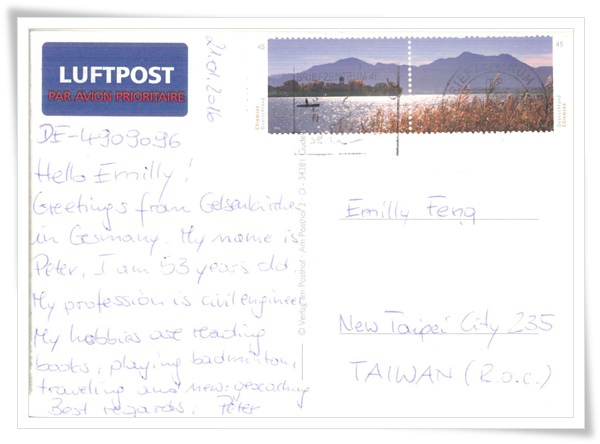 LUFTPOST
PAR AVION PRIORITAIRE
21.01.2016
45
45
Chiemsee
Deutschland
Chiemsee
Deutschland
BRIEFZENTRUM
BRIEFZENTRUM
DE-4909096
Hello Emilly!
Greetings from Gelsenkirchen
in Germany. My name is
Peter, I am 53 years old.
My profession is civil engineer
My hobbies are reading
books, playing badminton,
traveling and new: geocaching
Best regards, Peter
© Verlag am Posthof · Am Posthof 2 · D - 34281
Emilly Feng
New Taipei City 235
TAIWAN (R.O.C.)